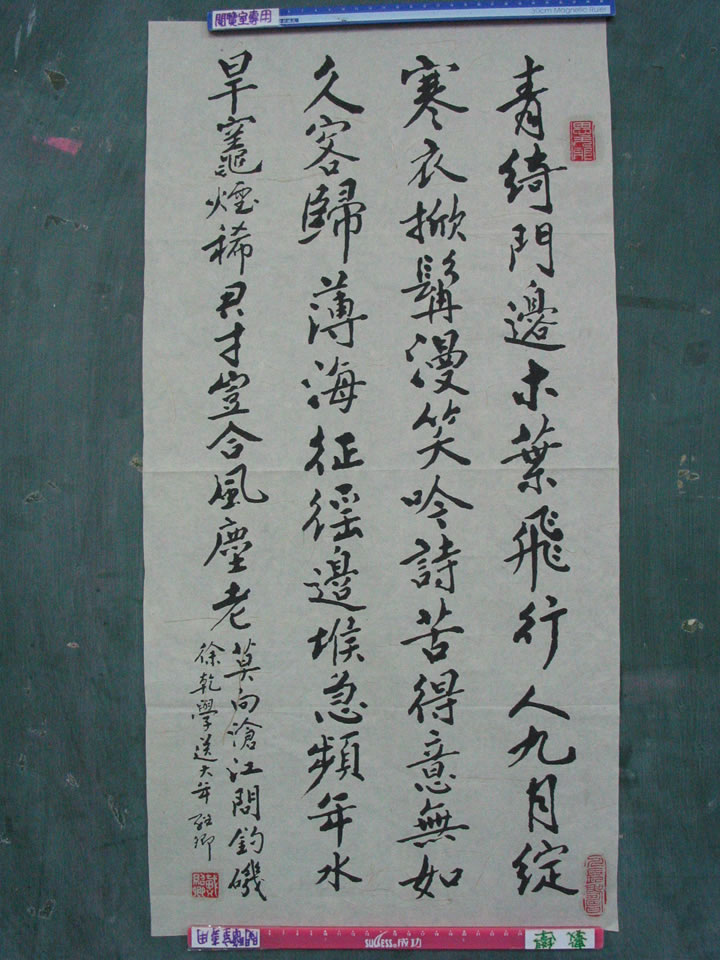 閱覽室專用
30cm Magnetic Ruler
青綺門邊木葉飛行人九月綻
寒衣掀髯漫笑吟詩苦得意無如
久客歸薄海征徭邊堠急頻年水
旱竈煙稀君才豈合風塵老
莫向滄江問釣磯
徐乾學送大年
SUCCESS 成功